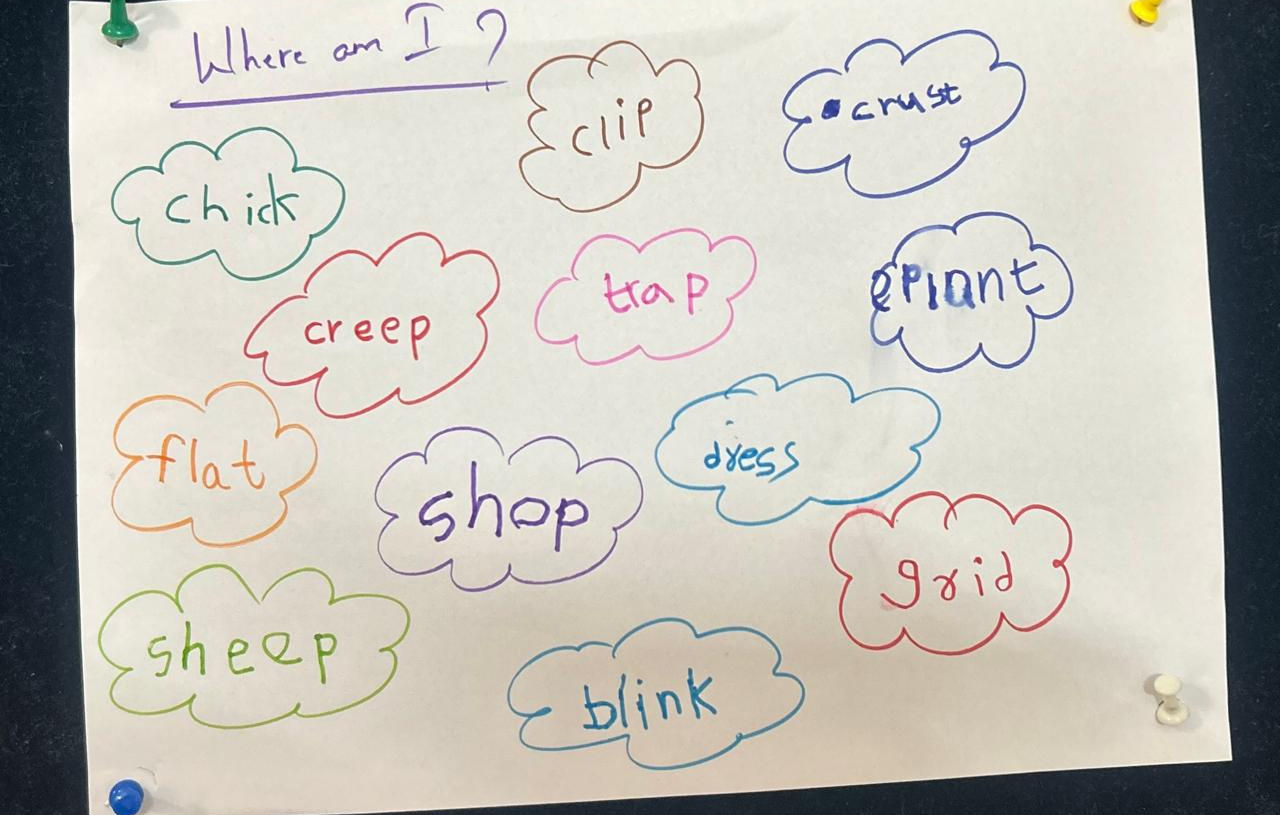 Where am I?
clip
crust
chick
creep
trap
plant
flat
shop
dress
grid
sheep
blink